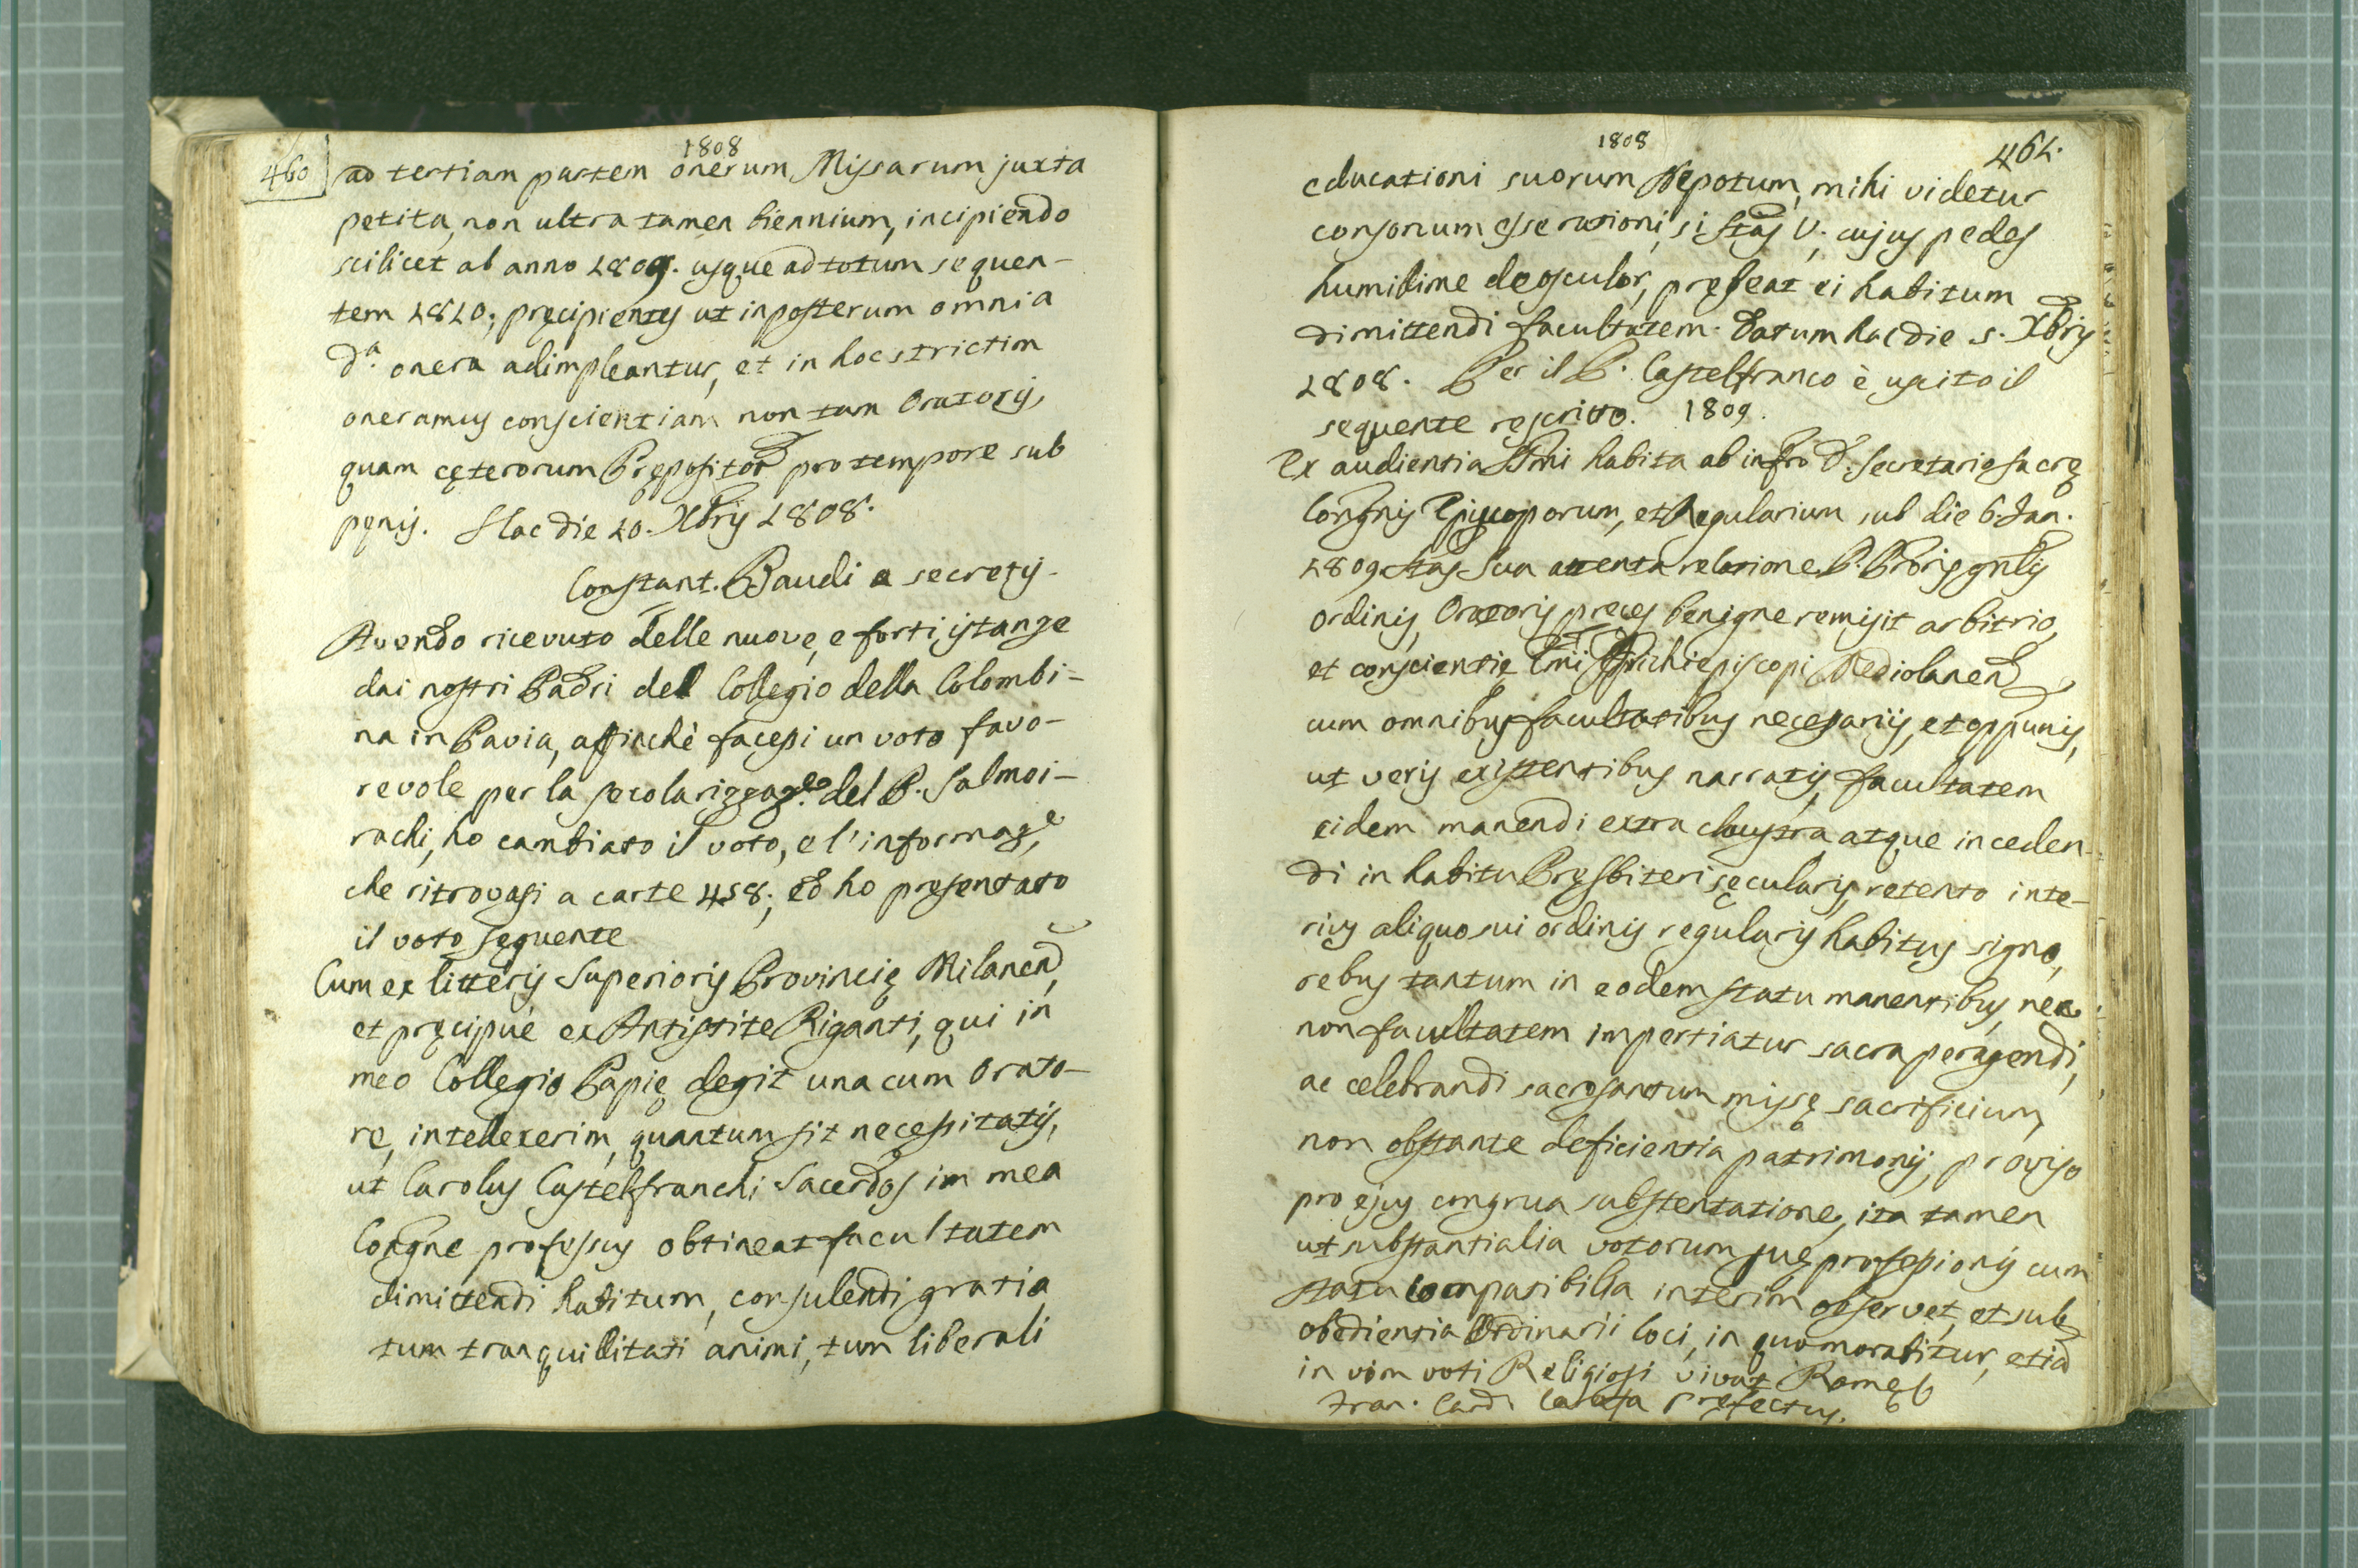 1808
460 ad tertiam partem onerum Missarum juxta
petita, non ultra tamen biennium, incipiendo
scilicet ab anno 1809. usque ad totum sequen-
tem 1810; pręcipientes ut inposterum omnia
d.ᵃ onera adimpleantur, et in hoc strictim
oneramus conscientiam non tam Oratoris,
quam cęterorum Prępositor pro tempore sub
pęnis. Hac die 10. Xbris 1808.
Constant. Baudi a secretis-
Avendo ricevuto delle nuove, e forti istanze
dai nostri Padri del Collegio della Colombi-
na in Pavia, affinchè facessi un voto favo-
revole per la secolarizzazᵉ. del P. Salmoi-
rachi, ho cambiato il voto, e l'informazᵉ,
che ritrovasi a carte 458; ed ho presentato
il voto seguente
Cum ex litteris Superioris Provincię Milanen,
et pręcipuè ex Antistite Riganti, qui in
meo Collegio Papię degit una cum Orato-
re, intellexerim, quantum sit necessitatis,
ut Carolus Castelfranchi Sacerdos in mea
Congne professus obtineat facultatem
dimittendi habitum, consulendi gratia
tum tranquillitati animi, tum liberali
1808
461.
educationi suorum Nepotum, mihi videtur
consonum esse rationi, si Stas V. cujus pedes
humilime deosculor, prębeat ei habitum
dimittendi facultatem. Datum hac die 5. Xbris
1808. Per il P. Castelfranco è uscito il
sequente rescritto. 1809.
Ex audientia SSmi habita ab infro D. Secretario Sacrę
Congnis Episcoporum, et Regularium sub die 6. Jan.
1809. Stas Sua attenta relatione P. Proris gnlis
ordinis, Oratoris preces benigne remisit arbitrio,
et conscientię Emi Archiepiscopi Mediolanen
cum omnibus facultatibus necessariis, et oppunis,
ut veris existentibus narratis, facultatem
eidem manendi extra claustra atque inceden-
di in habitu Pręsbiteri sęcularis, retento inte-
rius aliquo sui ordinis regularis habitus signo,
rebus tantum in eodem statu manentibus, nec
non facultatem impertiatur sacra peragendi,
ac celebrandi sacrosanctum missę sacrificium,
non obstante deficientia patrimonij, proviso
pro ejus congrua substentatione, ita tamen
ut substantialia votorum suę professionis cum
statu compatibilia interim observet, et sub
obedientia Ordinarii loci, in quo morabitur, etia
in vim voti Religiosi vivat Romę
Fran. Card. Carafa Pręfectus.